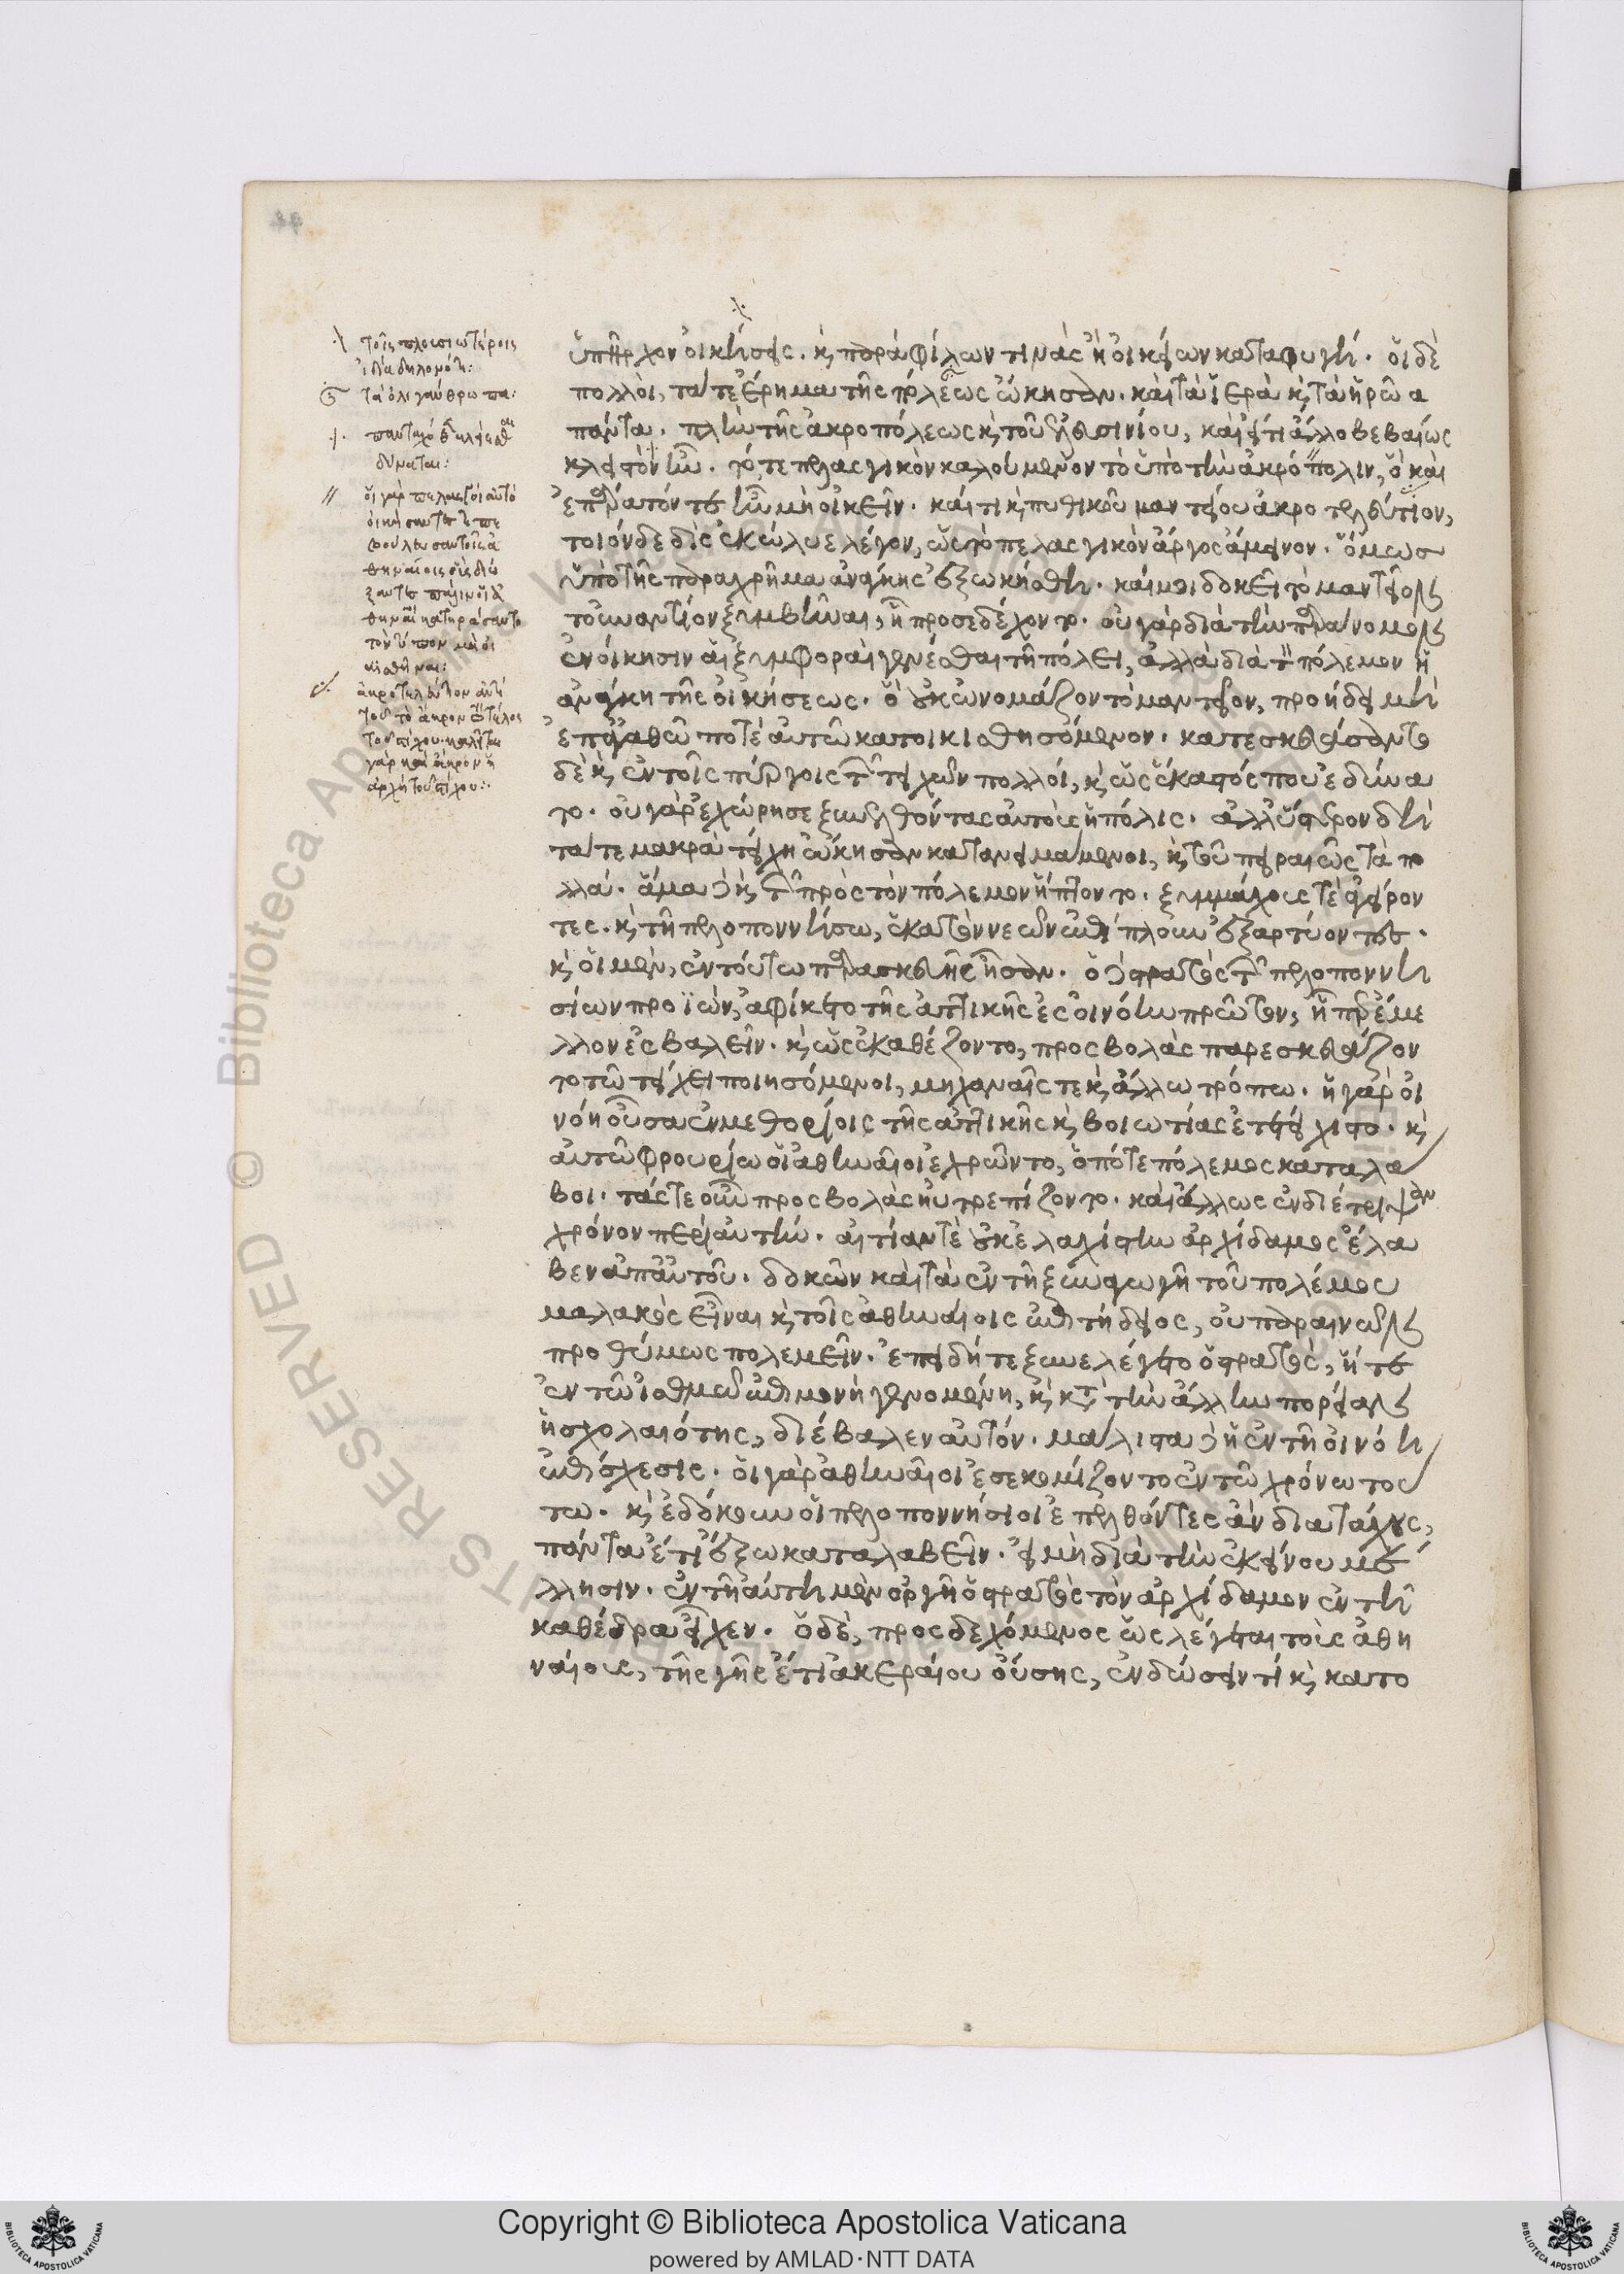 44
τοῖς πλουσιωτέροις
ἰδία δηλονότι:
τὰ ὀλιγάνθρωπα:
δύναται:
οἱ γὰρ πελασγοὶ αὐτὸ
οἰκήσαντες ἐπε
βούλευσαν τοῖς ἀ
θηναίοις οὓς διώ
ξαντες πάλιν οἱ ἀ
θηναῖοι κατηράσαντο
τὸν τόπον μὴ οἰ
κισθῆναι:
ἀκροτελεύτιον ἀντὶ
τοῦ τὸ ἄκρον καὶ τέλος
τοῦ στίχου· καλεῖται
γὰρ καὶ ἄκρον ἡ
ἀρχὴ τοῦ στίχου:
ὑπῆρχον οἰκήσεις. καὶ παρὰ φίλων τινὰς ἢ οἰκείων καταφυγή. οἱ δὲ
πολλοὶ, τά τε ἐρῆμα τῆς πόλεως ᾤκησαν. καὶ τὰ ἱερὰ καὶ τὰ ἡρῶα
πάντα. πλὴν τῆς ἀκροπόλεως καὶ τοῦ ἐλευσινίου, καὶ εἴ τι ἄλλο βεβαίως
κλειστὸν ἦν. τό τε πελασγικὸν καλούμενον τὸ ὑπὸ τὴν ἀκρόπολιν, ὃ καὶ
ἐπάρατόν τε ἦν μὴ οἰκεῖν. καί τι καὶ πυθικοῦ μαντείου ἀκροτελεύτιον,
τοιόνδε διεκώλυε λέγον, ὡς τὸ πελασγικὸν ἀργὸς ἄμεινον. ὅμως
ὑπὸ τῆς παραχρῆμα ἀνάγκης ἐξωκήθη. καί μοι δοκεῖ τὸ μαντεῖον
τοὐναντίον ξυμβῆναι, ἢ προσεδέχοντο. οὐ γὰρ διὰ τὴν παράνομον
ἐνοίκησιν αἱ ξυμφοραὶ γενέσθαι τῇ πόλει, ἀλλὰ διὰ τὸν πόλεμον ἡ
ἀνάγκη τῆς οἰκήσεως. ὃ οὐκ ὠνόμαζον τὸ μαντεῖον, προῄδει μὴ
ἐπ' ἀγαθῶ ποτὲ αὐτῶ κατοικισθησόμενον. κατεσκευάσαντο
δὲ καὶ ἐν τοῖς πύργοις τῶν τειχῶν πολλοί, καὶ ὡς ἕκαστός που ἐδύνα
το. οὐ γὰρ ἐχώρησε ξυνελθόντας αὐτοὺς ἡ πόλις. ἀλλ' ὕστερον δὴ
τά τε μακρὰ τείχη ᾤκησαν κατανειμάμενοι, καὶ τοῦ πειραιῶς τὰ πο
λλά. ἅμα δὲ καὶ τῶν πρὸς τὸν πόλεμον ἥπτοντο. ξυμμάχους τὲ ἀγείρον
τες. καὶ τῇ πελοποννήσω, ἑκατὸν νεῶν ἐπίπλουν ἐξαρτύοντες.
καὶ οἱ μὲν, ἐν τούτω παρασκευῆς ἦσαν. ὁ δὲ στρατὸς τῶν πελοποννη
σίων προϊὼν, ἀφίκετο τῆς ἀττικῆς ἐς οἰνόην πρῶτον, ᾗπερ ἔμε
λλον ἐσβαλεῖν. καὶ ὡς ἐκαθέζοντο, προσβολὰς παρεσκευάζον
το τῶ τείχει ποιησόμενοι, μηχαναῖς τε καὶ ἄλλω τρόπω. ἡ γὰρ οἰ
νόη οὖσα ἐν μεθορίοις τῆς ἀττικῆς καὶ βοιωτίας ἐτετείχιστο. καὶ
αὐτῶ φρουρίω οἱ ἀθηναῖοι ἐχρῶντο, ὁπότε πόλεμος καταλά
βοι. τάς τε οὖν προσβολὰς ηὐτρεπίζοντο. καὶ ἄλλως ἐνδιέτριψαν
χρόνον περὶ αὐτήν. αἰτίαν τὲ οὐκ ἐλαχίστην ἀρχίδαμος ἔλα
βεν ἀπ' αὐτοῦ. δοκῶν καὶ τὰ ἐν τῇ ξυναγωγῇ τοῦ πολέμου
μαλακὸς εἶναι καὶ τοῖς ἀθηναίοις ἐπιτήδειος, οὐ παραινῶν
προθύμως πολεμεῖν. ἐπειδή τε ξυνελέγετο ὁ στρατὸς, ἥ τε
ἐν τῶ ἰσθμῶ ἐπιμονὴ γενομένη, καὶ κατὰ τὴν ἄλλην πορείαν
ἡ σχολαιότης, διέβαλεν αὐτόν. μάλιστα δὲ ἡ ἐν τῇ οἰνόη
ἐπίσχεσις. οἱ γὰρ ἀθηναῖοι ἐσεκομίζοντο ἐν τῶ χρόνω του
τω. καὶ ἐδόκουν οἱ πελοποννήσιοι ἐπελθόντες ἂν διατάχους,
πάντα ἔτι ἔξω καταλαβεῖν. εἰ μὴ διὰ τὴν ἐκείνου μέ
λλησιν. ἐν τοιαύτη μὲν ὀργῇ ὁ στρατὸς τὸν ἀρχίδαμον ἐν τῇ
καθέδρα εἶχεν. ὁ δὲ, προσδεχόμενος ὡς λέγεται τοὺς ἀθη
ναίους, τῆς γῆς ἔτι ἀκεραίου οὔσης, ἐνδώσειν τι καὶ κατο
© Biblioteca Apostolica Vaticana ALL RIGHTS RESERVED
Copyright © Biblioteca Apostolica Vaticana
powered by AMLAD·NTT DATA
BIBLIOTECA APOSTOLICA VATICANA
BIBLIOTECA APOSTOLICA VATICANA